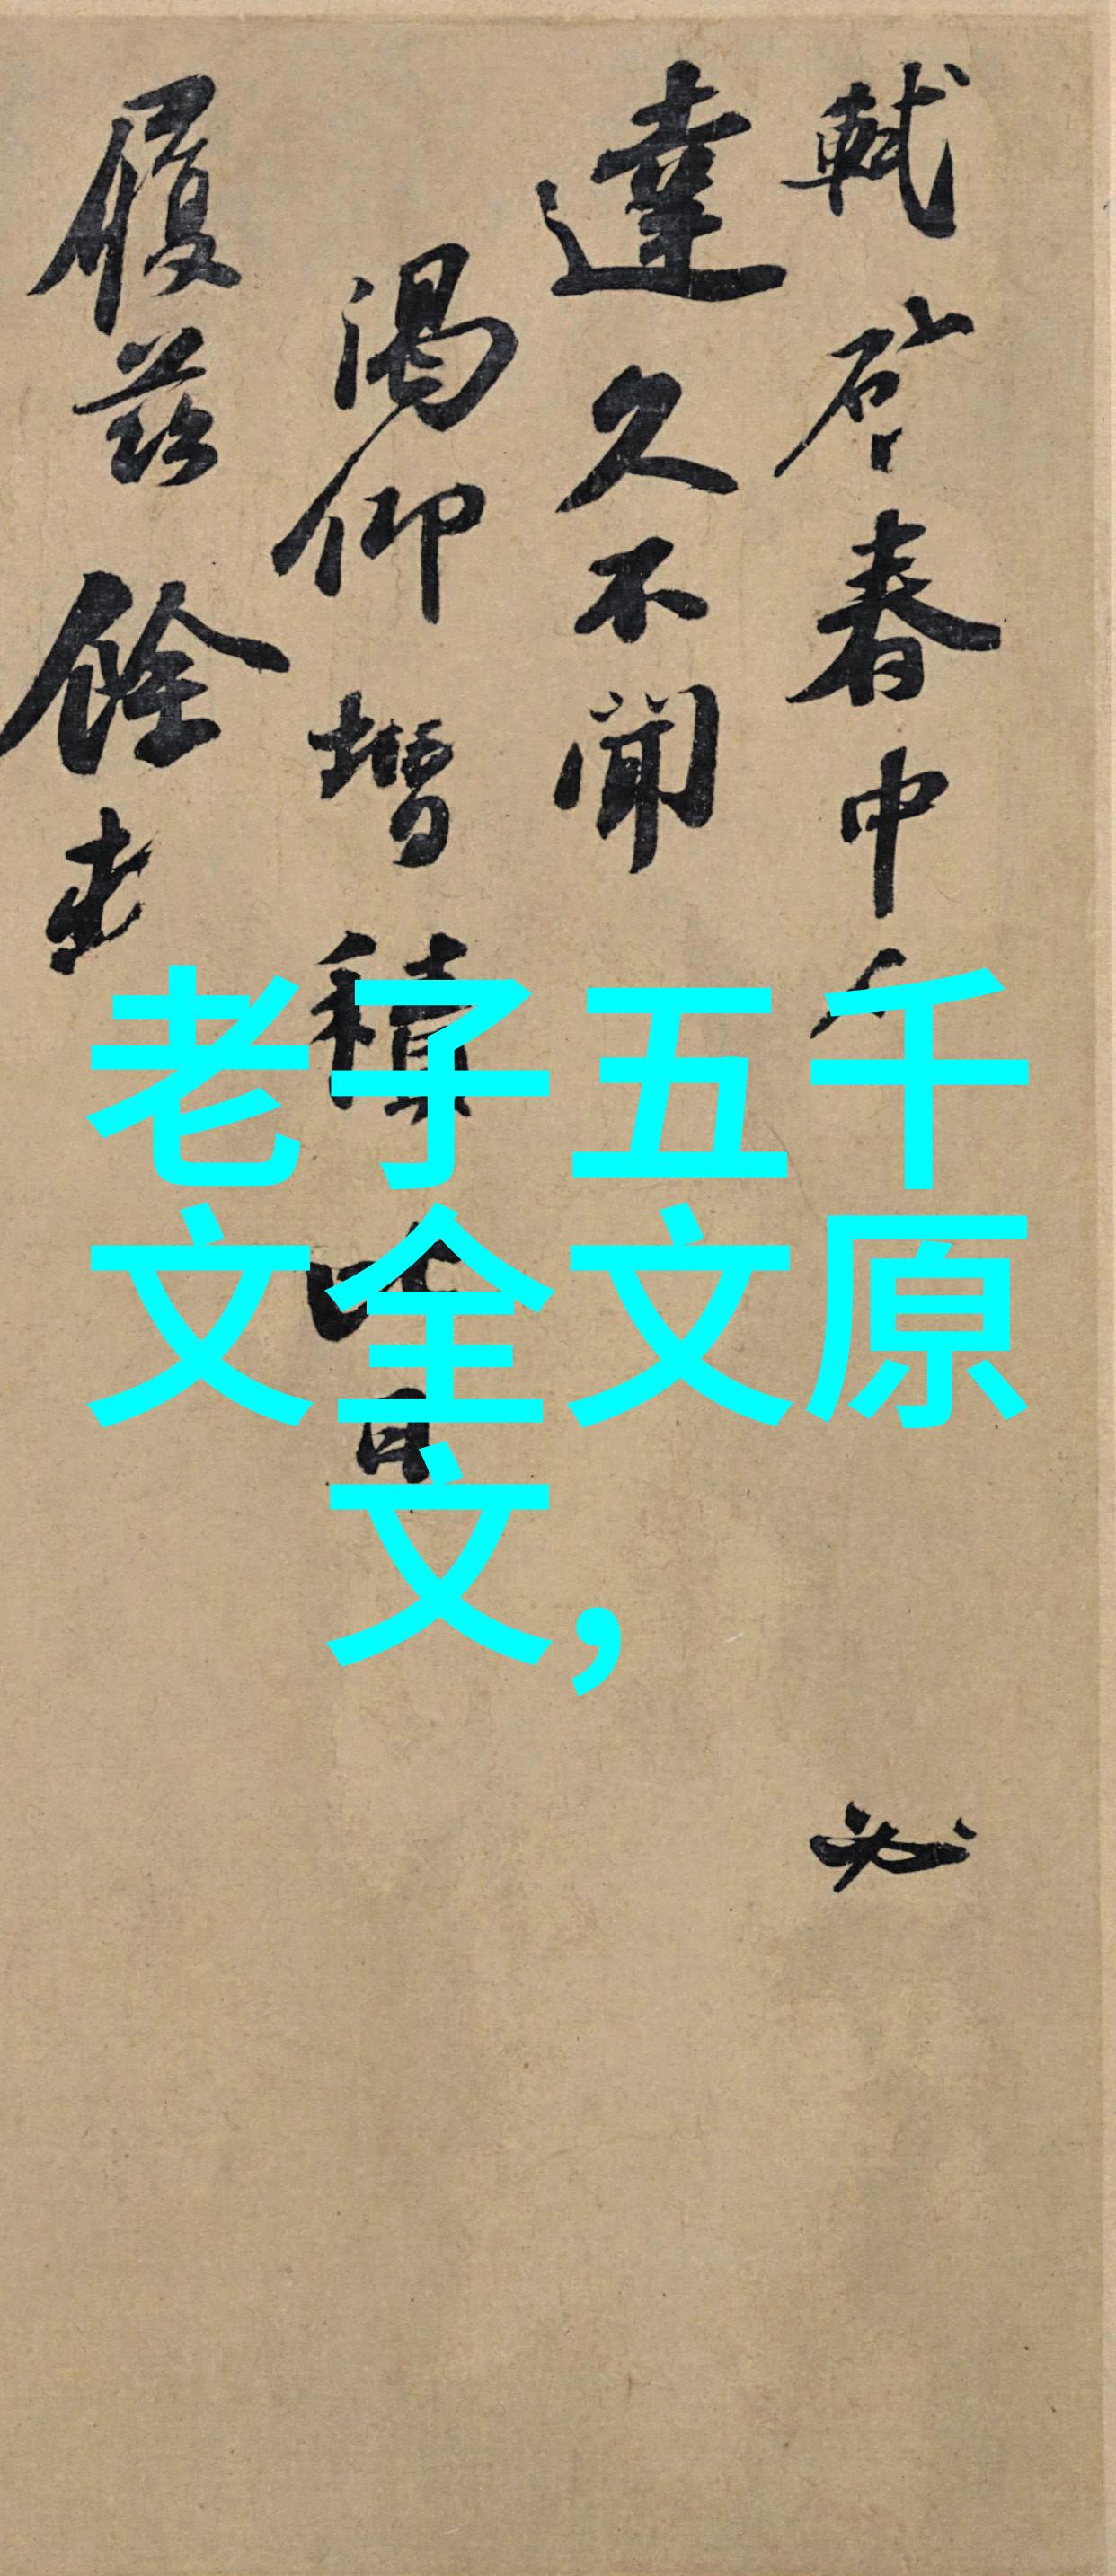 軾啓春中
必
達久不聞
渴仰增積比日
履茲餘
老子五千
文全文原
文，